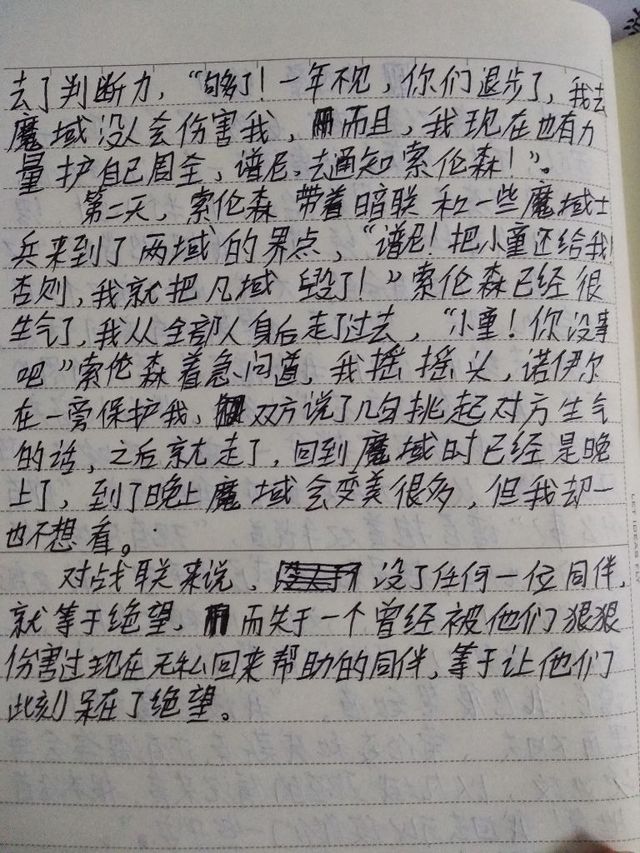 去了判断力，“够了！一年不见，你们退步了，我去
魔域没人会伤害我，而且，我现在也有力
量护自己周全，谱尼，去通知索伦森！”。
第二天，索伦森带着暗联和一些魔域士
兵来到了两域的界点，“谱尼！把小童还给我！
否则，我就把凡域毁了！”索伦森已经很
生气了，我从全部人身后走了过去，“小童！你没事
吧”索伦森着急问道，我摇摇头，诺伊尔
在一旁保护我，双方说了几句挑起对方生气
的话，之后就走了，回到魔域时已经是晚
上了，到了晚上魔域会变美很多，但我却一
也不想看。
对战联来说，没了任何一位同伴，
就等于绝望，而失于一个曾经被他们狠狠
伤害过现在无私回来帮助的同伴，等于让他们
此刻呆在了绝望。